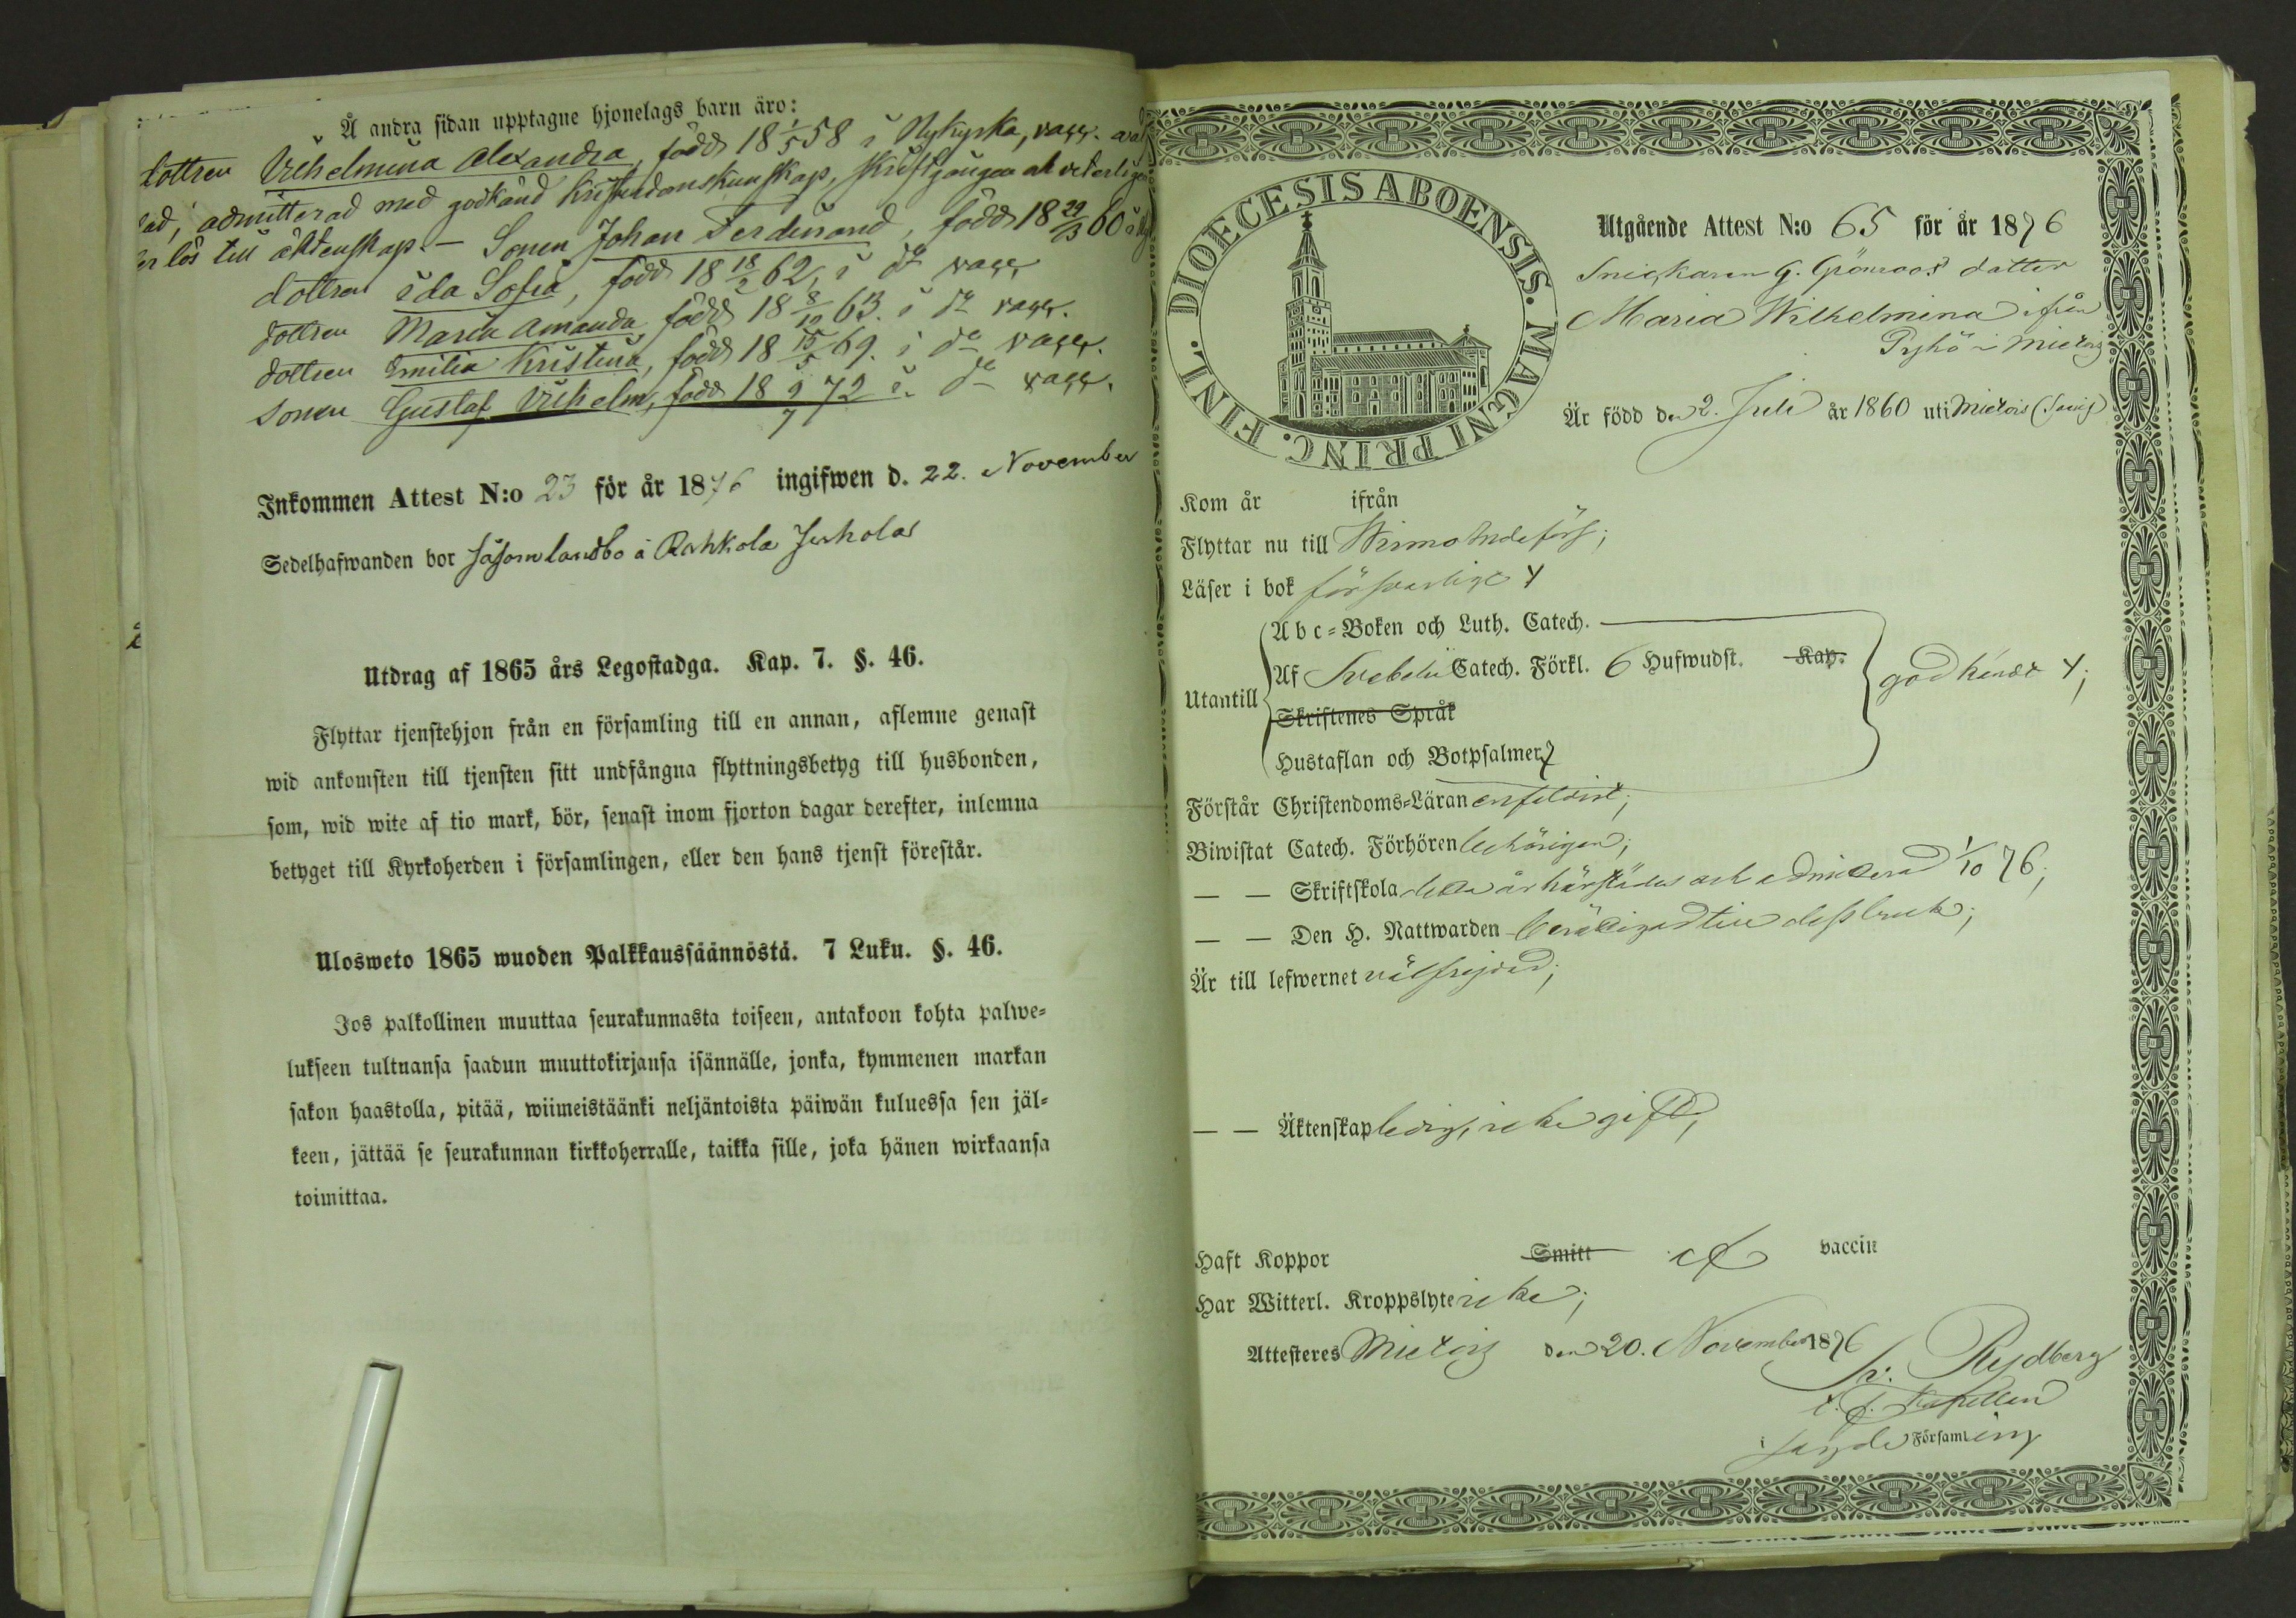 Å andra sidan upptagne hjonelags barn äro:
dottren Vilhelmina Alexandra, född 18 1/5 58 i Nykyrka, vacc.
admitterad med godkänd Kristendomskunskap,
lös till äktenskap. – Sonen Johan Ferdinand, född 18 29/3 60 i
dottren Ida Sofia, född 18 18/2 62, i do vacc.
dottren Maria Amanda född 18 8/10 63. i do vacc.
dottren Emilia Kristina, född 18 15/5 69. i do vacc.
Sonen Gustaf Vilhelm, född 18 9/7 72 i do vacc.
Inkommen Attest N:o 23 för år 1876 ingifwen d. 22. November
Sedelhafwanden bor såsom landbo å
Utdrag af 1865 års Legostadga. Kap. 7. §. 46.
Flyttar tjenstehjon från en församling till en annan, aflemne genast
wid ankomsten till tjensten sitt undfångna flyttningsbetyg till husbonden,
som, wid wite af tio mark, bör, senast inom fjorton dagar derefter, inlemna
betyget till Kyrkoherden i församlingen, eller den hans tjenst förestår.
Ulosweto 1865 wuoden Palkkaussäännöstä. 7 Luku. §. 46.
Jos palkollinen muuttaa seurakunnasta toiseen, antakoon kohta palwe=
lukseen tultuansa saadun muuttokirjansa isännälle, jonka, kymmenen markan
sakon haastolla, pitää, wiimeistäänki neljäntoista päiwän kuluessa sen jäl=
keen, jättää se seurakunnan kirkkoherralle, taikka sille, joka hänen wirkaansa
toimittaa.
DIOECESIS ABOENSIS. MAGNI PRINC. FINL.
Utgående Attest N:o 65 för år 1876
Snickaren G. Grönroos' dotter
Maria Wilhelmina ifrån
Pyhö – Mietois
Är född den 2. Juli år 1860 uti Mietois
Kom år ifrån
Flyttar nu till Wirmo
Läser i bok försvarligt
Abc=Boken och Luth. Catech.
Af Svebelii Catech. Förkl. 6 Hufwudst. Kap.
Utantill
godkändt
Skriftenes Språk
Hustaflan och Botpsalmer
Förstår Christendoms=Läran enfaldist;
Biwistat Catech. Förhören behörigen;
— — Skriftskola detta år härstädes och admitterad 1/10 76;
— — Den H. Nattwarden berättigad till dess bruk;
Är till lefwernet välfrejdad;
— — Äktenskap ledig, icke gift;
Haft Koppor Smitt af vaccin
Har Witterl. Kroppslyte icke;
Attesteres Mietois den 20. November 1876
Rydberg
Kapellan
i sagde Församling